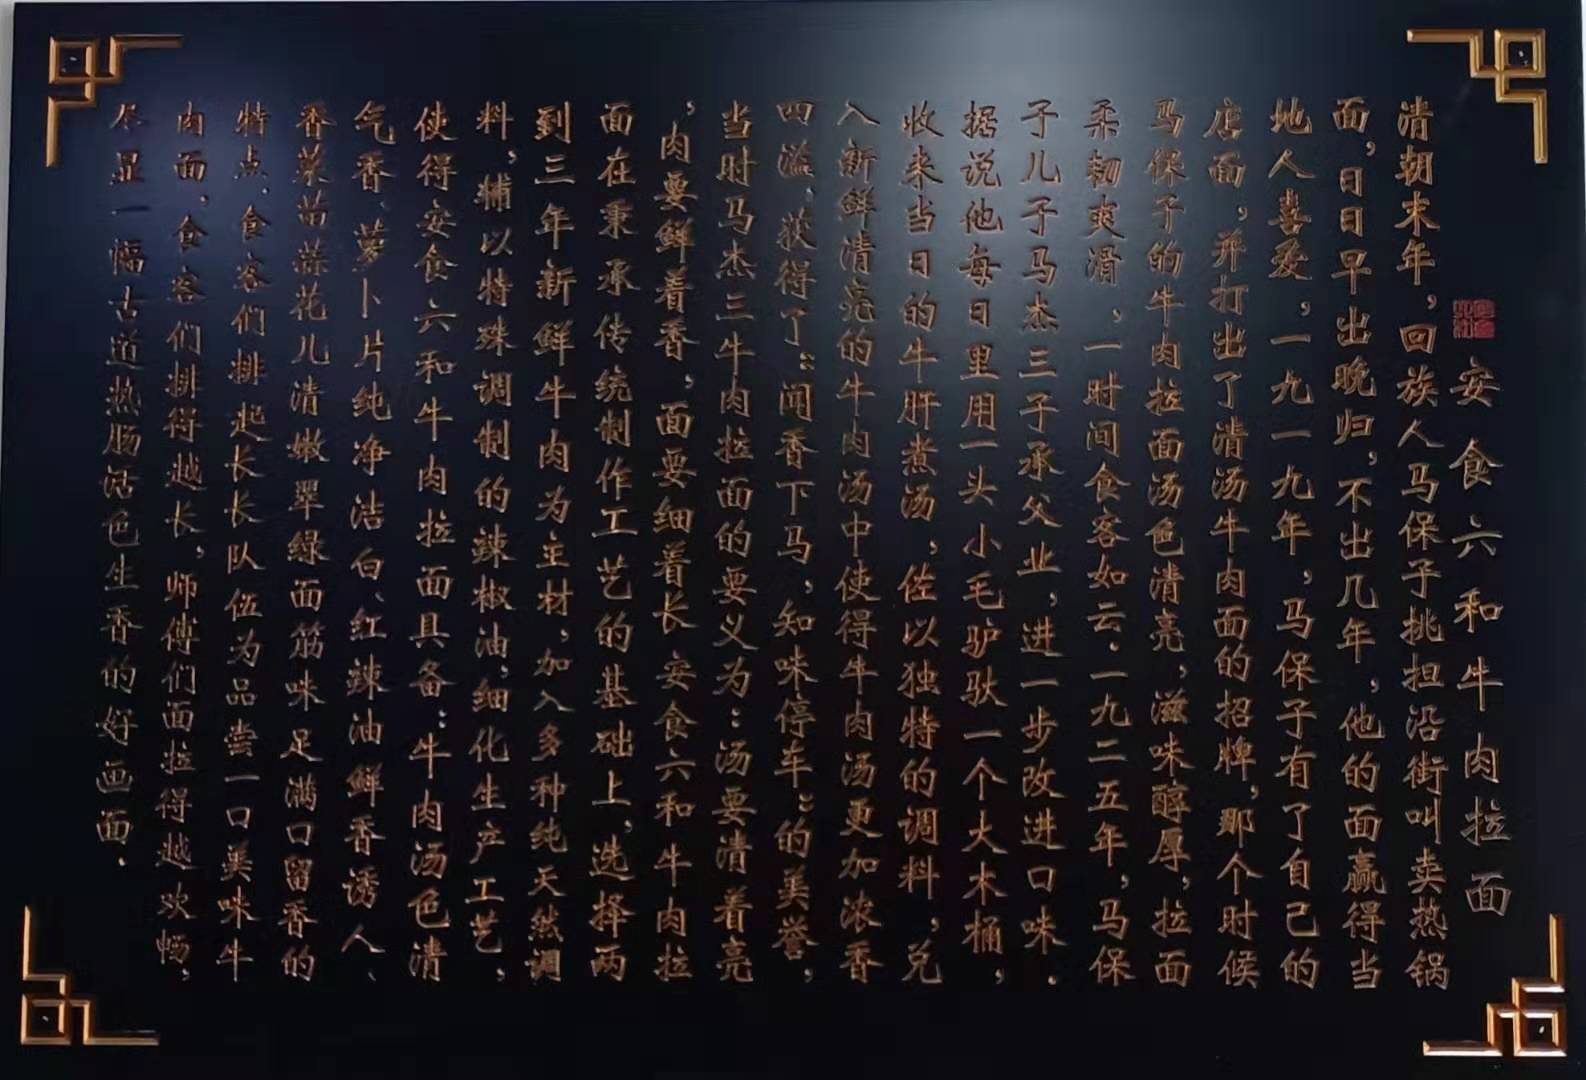 安食六和牛肉拉面
清朝末年，回族人马保子挑担沿街叫卖热锅
面，日日早出晚归，不出几年，他的面赢得当
地人喜爱，一九一九年，马保子有了自己的
店面，并打出了清汤牛肉面的招牌，那个时候
马保子的牛肉拉面汤色清亮，滋味醇厚，拉面
柔韧爽滑，一时间食客如云。一九二五年，马保
子儿子马杰三子承父业，进一步改进口味。
据说他每日里用一头小毛驴驮一个大木桶，
收来当日的牛肝煮汤，佐以独特的调料，兑
入新鲜清亮的牛肉汤中使得牛肉汤更加浓香
四溢，获得了：闻香下马，知味停车：的美誉，
当时马杰三牛肉拉面的要义为：汤要清着亮
，肉要鲜着香，面要细着长安食六和牛肉拉
面在秉承传统制作工艺的基础上，选择两
到三年新鲜牛肉为主材，加入多种纯天然调
料，辅以特殊调制的辣椒油，细化生产工艺，
使得安食六和牛肉拉面具备：牛肉汤色清
气香、萝卜片纯净洁白、红辣油鲜香诱人、
香菜苗蒜花儿清嫩翠绿面筋味足满口留香的
特点、食客们排起长长队伍为品尝一口美味牛
肉面、食客们排得越长，师傅们面拉得越欢畅，
尽显一幅古道热肠活色生香的好画面。